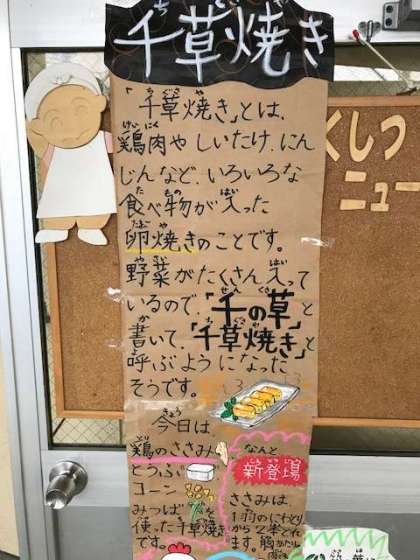 千草焼き
「千草焼き」とは、
鶏肉やしいたけ、にん
じんなど、いろいろな
食べ物が入った
卵焼きのことです。
野菜がたくさん入って
いるので、「千の草」と
書いて、「千草焼き」と
呼ぶようになった
そうです。
今日は
鶏のささみ
とうふ
コーン
みつば を
使った千草焼き
です。
なんと
新登場
ささみは
1羽のにわとり
から2本とれ
ます。胸あたり
くしつ
ニュー